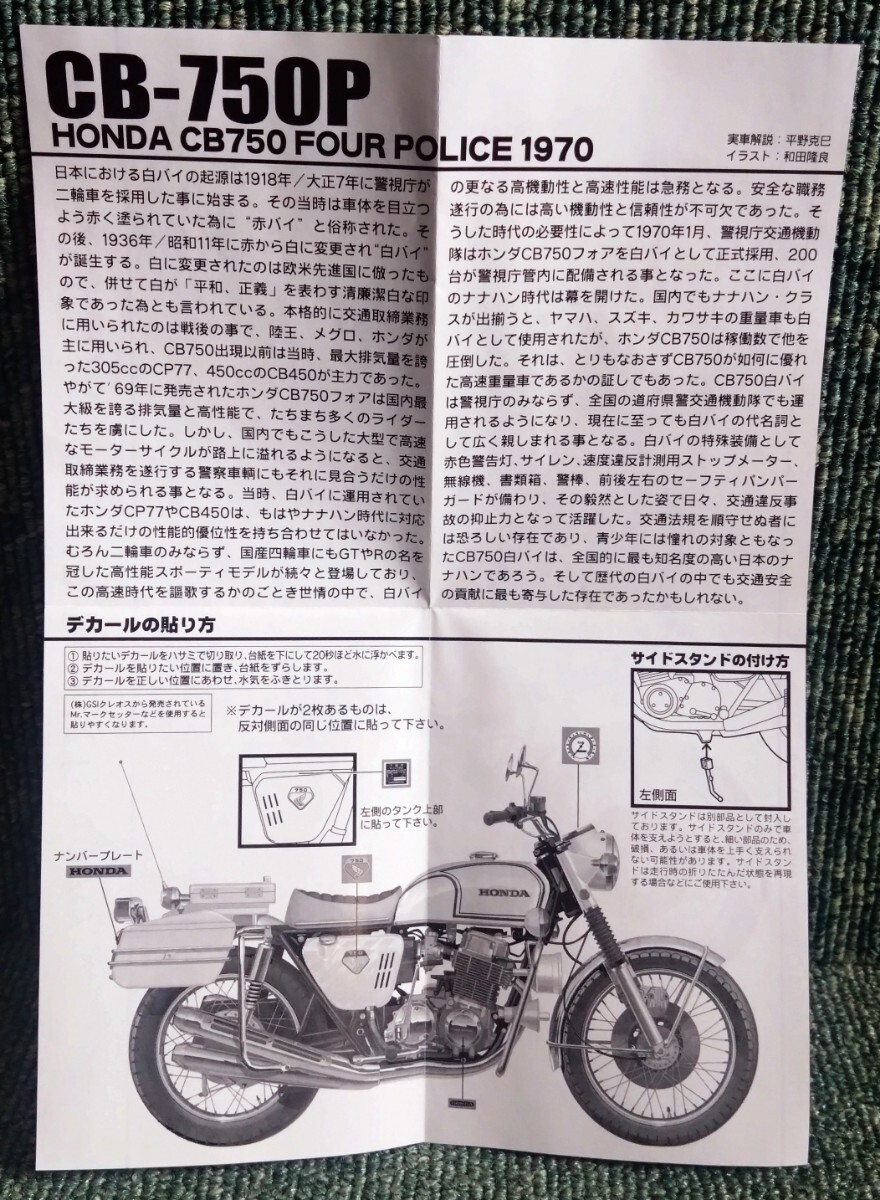 CB-750P
HONDA CB750 FOUR POLICE 1970
実車解説：平野克巳
イラスト：和田隆良
日本における白バイの起源は1918年／大正7年に警視庁が
二輪車を採用した事に始まる。その当時は車体を目立つ
よう赤く塗られていた為に“赤バイ”と俗称された。そ
の後、1936年／昭和11年に赤から白に変更され“白バイ”
が誕生する。白に変更されたのは欧米先進国に倣ったも
ので、併せて白が「平和、正義」を表わす清廉潔白な印
象であった為とも言われている。本格的に交通取締業務
に用いられたのは戦後の事で、陸王、メグロ、ホンダが
主に用いられ、CB750出現以前は当時、最大排気量を誇
った305ccのCP77、450ccのCB450が主力であった。
やがて’69年に発売されたホンダCB750フォアは国内最
大級を誇る排気量と高性能で、たちまち多くのライダー
たちを虜にした。しかし、国内でもこうした大型で高速
なモーターサイクルが路上に溢れるようになると、交通
取締業務を遂行する警察車輌にもそれに見合うだけの性
能が求められる事となる。当時、白バイに運用されてい
たホンダCP77やCB450は、もはやナナハン時代に対応
出来るだけの性能的優位性を持ち合わせてはいなかった。
むろん二輪車のみならず、国産四輪車にもGTやRの名を
冠した高性能スポーティモデルが続々と登場しており、
この高速時代を謳歌するかのごとき世情の中で、白バイ
の更なる高機動性と高速性能は急務となる。安全な職務
遂行の為には高い機動性と信頼性が不可欠であった。そ
うした時代の必要性によって1970年1月、警視庁交通機動
隊はホンダCB750フォアを白バイとして正式採用、200
台が警視庁管内に配備される事となった。ここに白バイ
のナナハン時代は幕を開けた。国内でもナナハン・クラ
スが出揃うと、ヤマハ、スズキ、カワサキの重量車も白
バイとして使用されたが、ホンダCB750は稼働数で他を
圧倒した。それは、とりもなおさずCB750が如何に優れ
た高速重量車であるかの証しでもあった。CB750白バイ
は警視庁のみならず、全国の道府県警交通機動隊でも運
用されるようになり、現在に至っても白バイの代名詞と
して広く親しまれる事となる。白バイの特殊装備として
赤色警告灯、サイレン、速度違反計測用ストップメーター、
無線機、書類箱、警棒、前後左右のセーフティバンパー
ガードが備わり、その毅然とした姿で日々、交通違反事
故の抑止力となって活躍した。交通法規を順守せぬ者に
は恐ろしい存在であり、青少年には憧れの対象ともなっ
たCB750白バイは、全国的に最も知名度の高い日本のナ
ナハンであろう。そして歴代の白バイの中でも交通安全
の貢献に最も寄与した存在であったかもしれない。
デカールの貼り方
①貼りたいデカールをハサミで切り取り、台紙を下にして20秒ほど水に浮かべます。
②デカールを貼りたい位置に置き、台紙をずらします。
③デカールを正しい位置にあわせ、水気をふきとります。
(株)GSIクレオスから発売されている
Mr.マークセッターなどを使用すると
貼りやすくなります。
※デカールが2枚あるものは、
反対側面の同じ位置に貼って下さい。
サイドスタンドの付け方
左側面
サイドスタンドは別部品として封入し
ております。サイドスタンドのみで車
体を支えようとすると、細い部品のため、
破損、あるいは車体を上手く支えられ
ない可能性があります。サイドスタン
ドは走行時の折りたたんだ状態を再現
する場合などにご使用下さい。
750
左側のタンク上部
に貼って下さい。
ナンバープレート
HONDA
HONDA
750